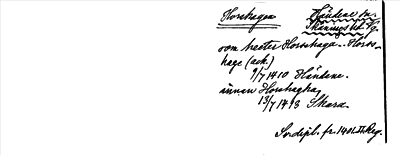 Horshaga Händene sn.
Skånings hd. Vg.
som heeter Horsshaga.. Horss-
hage (ack.)
9/7 1410 Händene.
innan Horshagha,
13/7 1413 Skara.
Sv. dipl. fr. 1401. II. Reg.